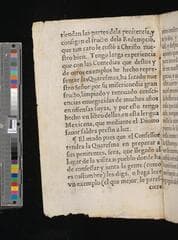 tiendan las partes dela penitencia, y
consigan el fructo dela Redempcio,
que tan caro le costó a Christo nue-
stro bien. Tengo larga experiencia
que con las Comedias que destos y
de otros exemplos he hecho repre-
sentar las Quaresmas, ha sacado nue
stro Señor por su misericordia gran
fructo, limpiado y renovado cons-
ciencias enmarañadas de muchos años
en ofensas suyas, y por esto tengo
hecho un libro dellas en esta lengua
Mexicana, que mediante el Divino
favor saldrá presto a luz.
¶ El modo pues que el Confessor
tendra la Quaresma en preparar a
sus penitentes, sera, que en llegado al
lugar de la visita o pueblo donde ha
de confessar y junta la gente (como
es costumbre) les diga, o haga leer
un exemplo (el que mejor, le pares-